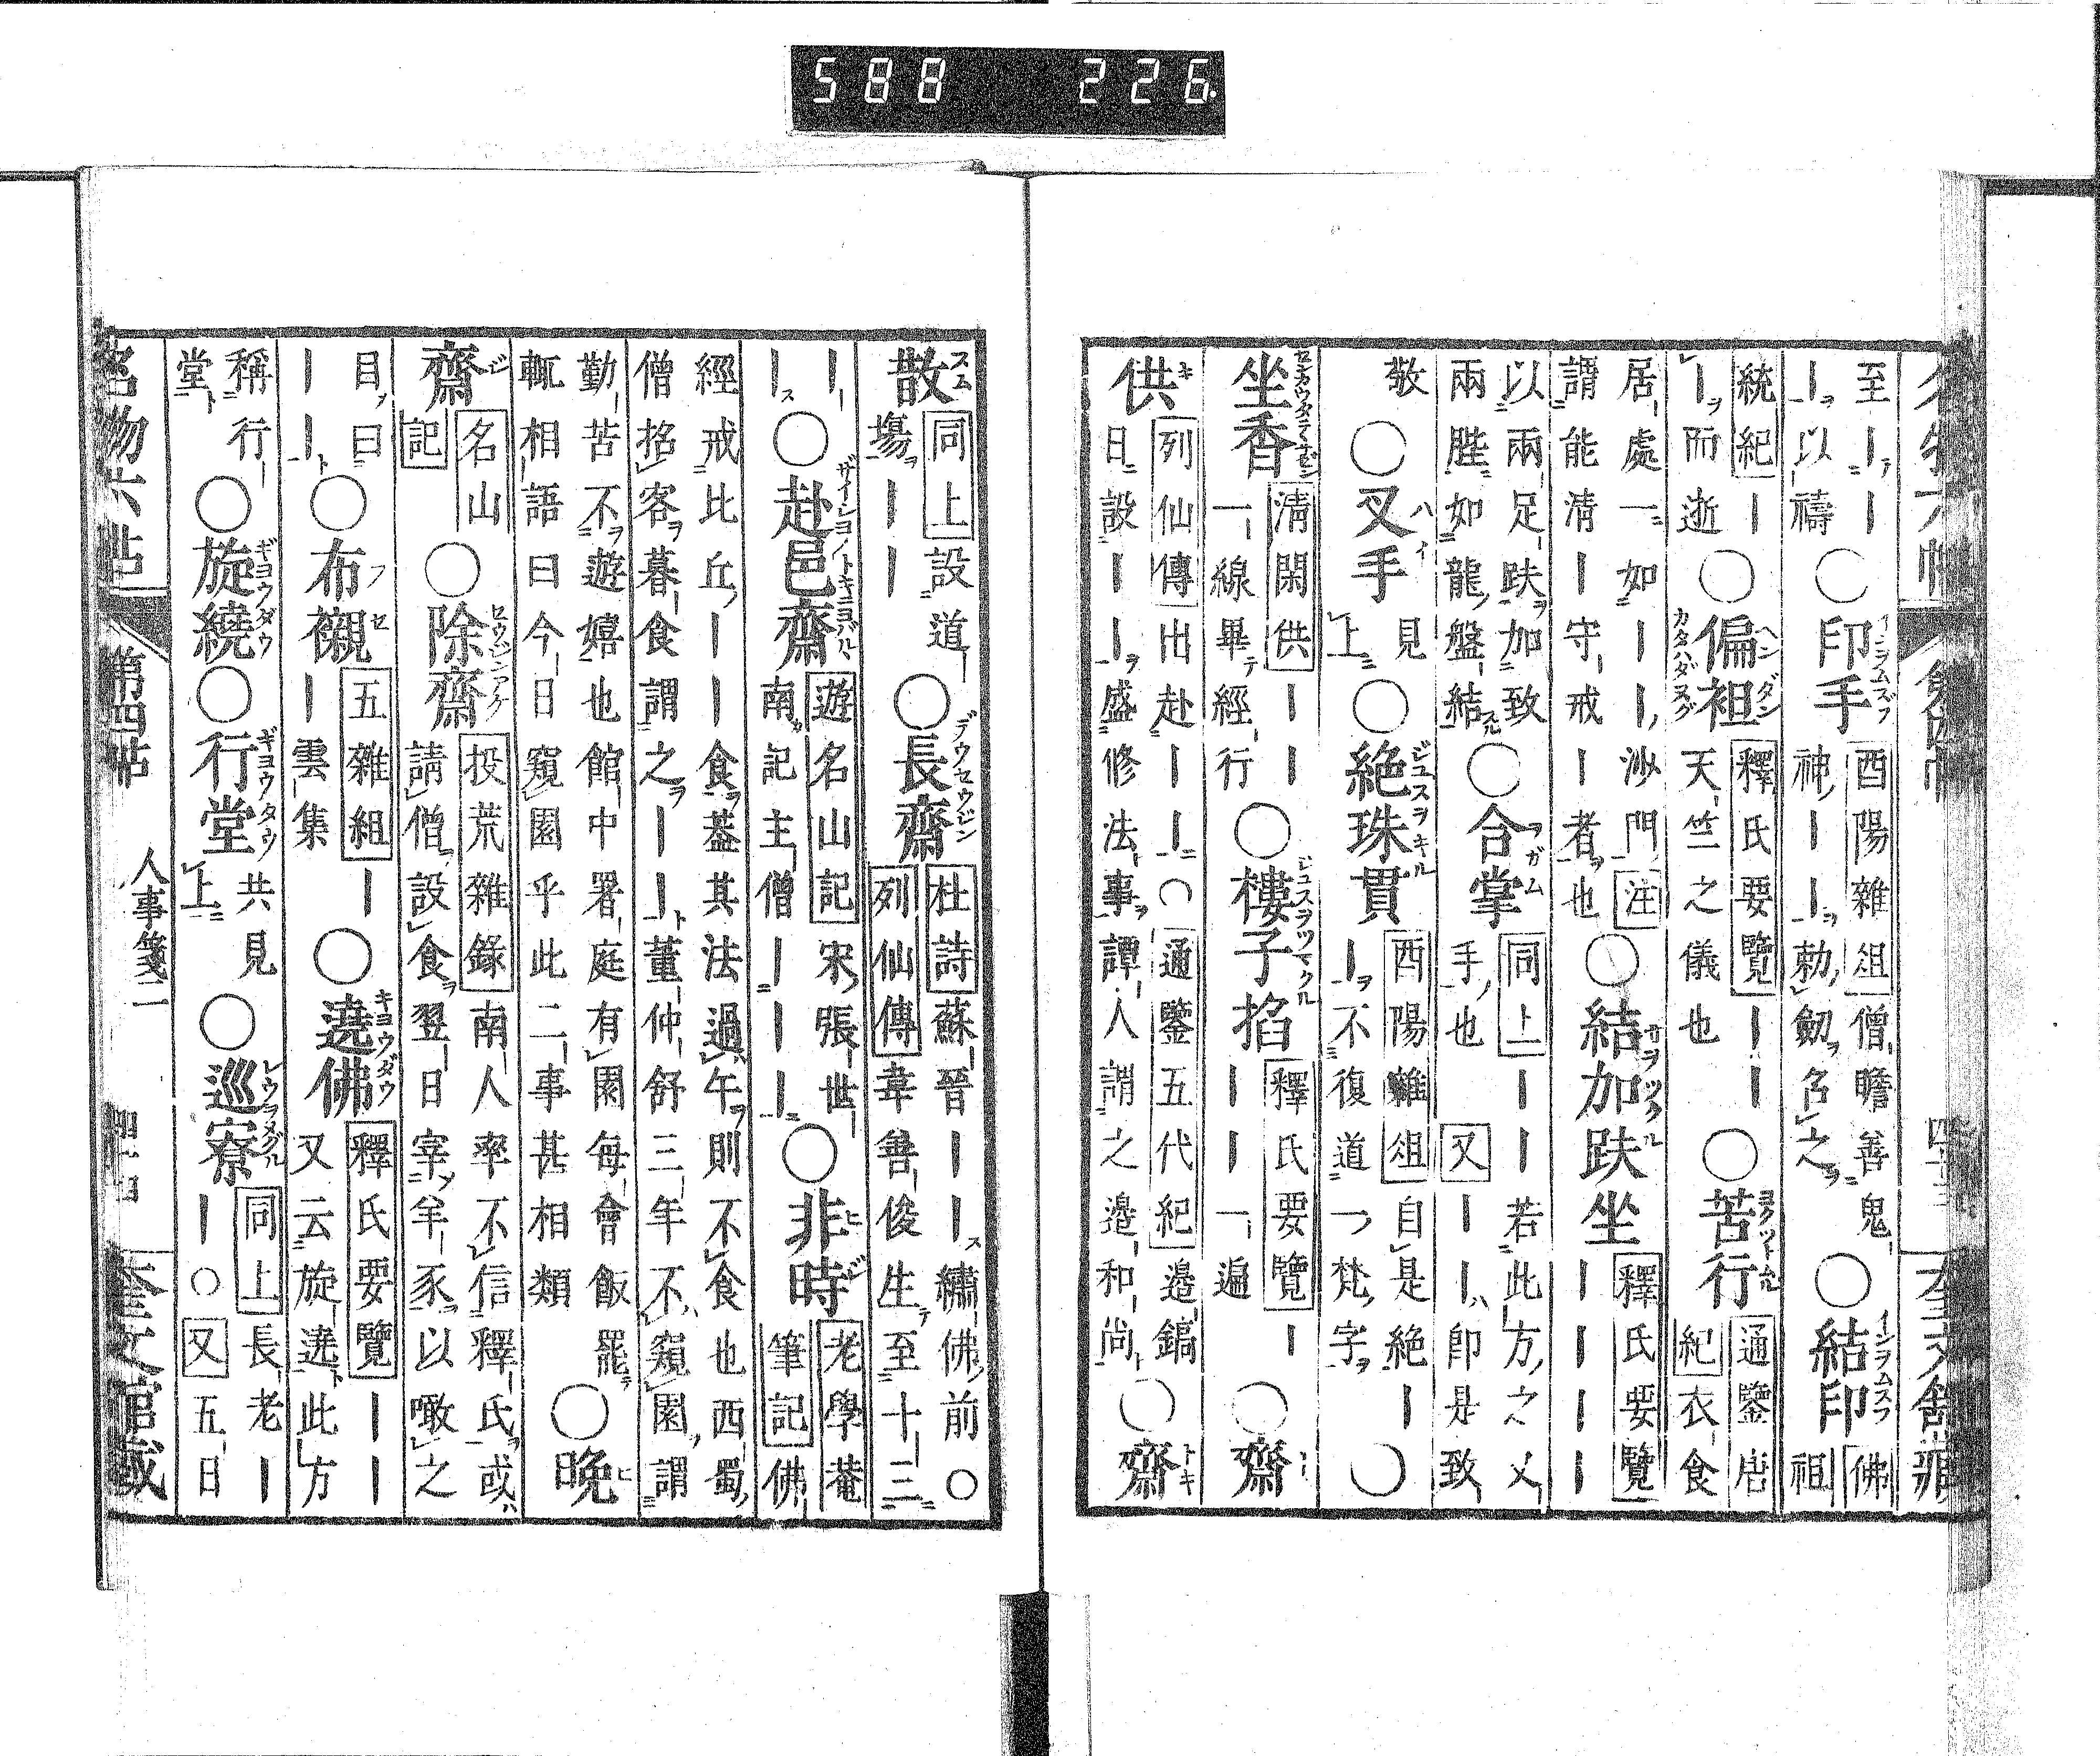 至｜｜｜以禱○印手酉陽雜俎僧瞻善鬼神｜｜勅劒名之○結印佛祖
統紀｜｜而逝○偏袒釋氏要覽｜｜天竺之儀也○苦行通鑒唐紀衣食
居處一如｜｜沙門注謂能淸｜守戒｜者也○結加趺坐釋氏要覽｜｜｜｜
以兩足趺加致兩䏶如龍盤結○合掌同上｜｜若此方之乂手也又｜｜卽是致
敬○叉手見上○絶珠貫酉陽雜俎自是絶｜｜不復道一梵字○
坐香淸閑供｜｜一線畢經行○樓子掐釋氏要覽｜｜｜一遍○齋
供列仙傳出赴｜｜○通鑒五代紀邉鎬日設｜｜盛修法事譚人謂之邉和尚○齋
散同上設道塲｜｜○長齋杜詩蘇晉｜｜繡佛前○列仙傳韋善俊生至十三
｜｜○赴邑齋遊名山記宋張世南記主僧｜｜｜○非時老學菴筆記佛
經戒比丘｜｜食葢其法過午則不食也西蜀僧招客暮食謂之｜｜董仲舒三年不窺園謂
勤苦不遊嬉也館中署庭有園每會飯罷輒相語曰今日窺園乎此二事甚相類○晚
齋名山記○除齋投荒雜錄南人率不信釋氏或請僧設食翌日宰羊豕以噉之
目曰｜｜○布襯五雜組｜｜雲集○遶佛釋氏要覽｜｜又云旋遶此方
稱行堂○旋繞○行堂共見上○巡寮同上長老｜｜○又五日
名物六帖 第四帖 人事箋二 奎文館藏
588 226